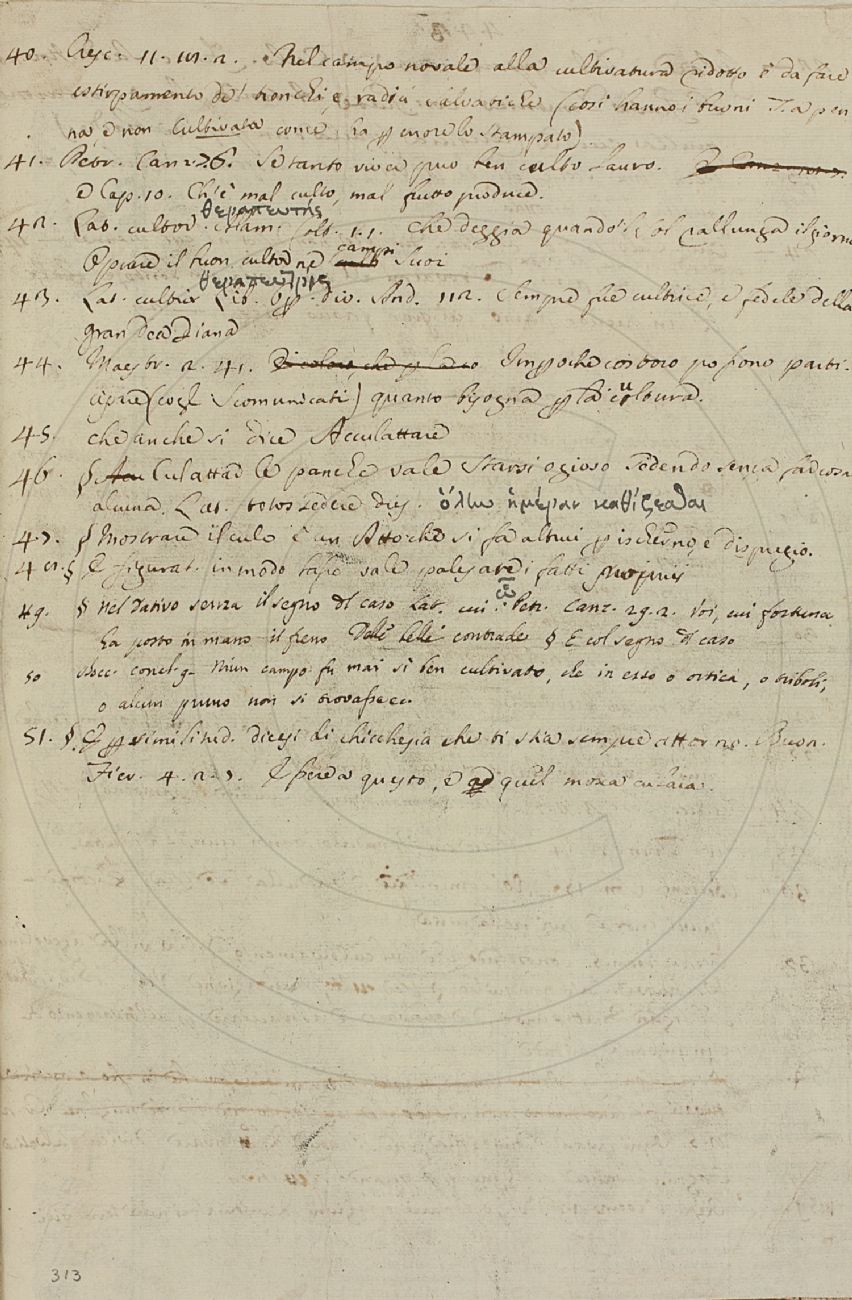 40. Cresc. 11. 18. 2. Nel campo novale alla cultivatura ridotto è da fare
estirpamento de' tronchi e radici salvatiche (così hanno i buoni T. a pen
na, e non Cultivata come ha per errore lo stampato)
41. Petr. Canz. 26. Se tanto viver può ben culto Lauro.
e Cap. 10. Ch'è mal culto, mal frutto produce.
θεραπευτής
42. Lat. cultor. Alam. Colt. 1. 1. Che deggia quando il sol rallunga il giorno
Oprare il buon cultor ne campi suoi
θεραπεύτρις
43. Lat. cultrix Lib. Op. div. And. 112. Sempre fue cultrice, e fedele della
gran dea Diana
44. Maestr. 2. 41. Imperocchè costoro possono parti-
cipare (cogli scomunicati) quanto bisogna per la cultura.
45. che anche si dice Acculattare
46. § Culattar le panche vale starsi ozioso sedendo senza far cosa
alcuna. Lat. totos sedere dies. ὅλην ἡμέραν καθίζεσθαι
47. § Mostrare il culo è un Atto che si fa altrui per ischerno, e dispregio.
48. § E figurat. in modo basso vale palesare i fatti proprij
ᾧ
49. § nel Dativo senza il segno del caso Lat. cui. Petr. Canz. 29. 2. Voi, cui fortuna
ha posto in mano il freno Delle belle contrade § E col segno del caso
50 Bocc. concl. 9. Niun campo fu mai sì ben cultivato, che in esso o ortica, o triboli,
o alcun pruno non si trovasse ec.
51. § E per similitud. dicesi di chicchesia che ti stia sempre attorno. Buon.
Fier. 4. 2. 7. E serra questo, e quel mosca culaia.
313